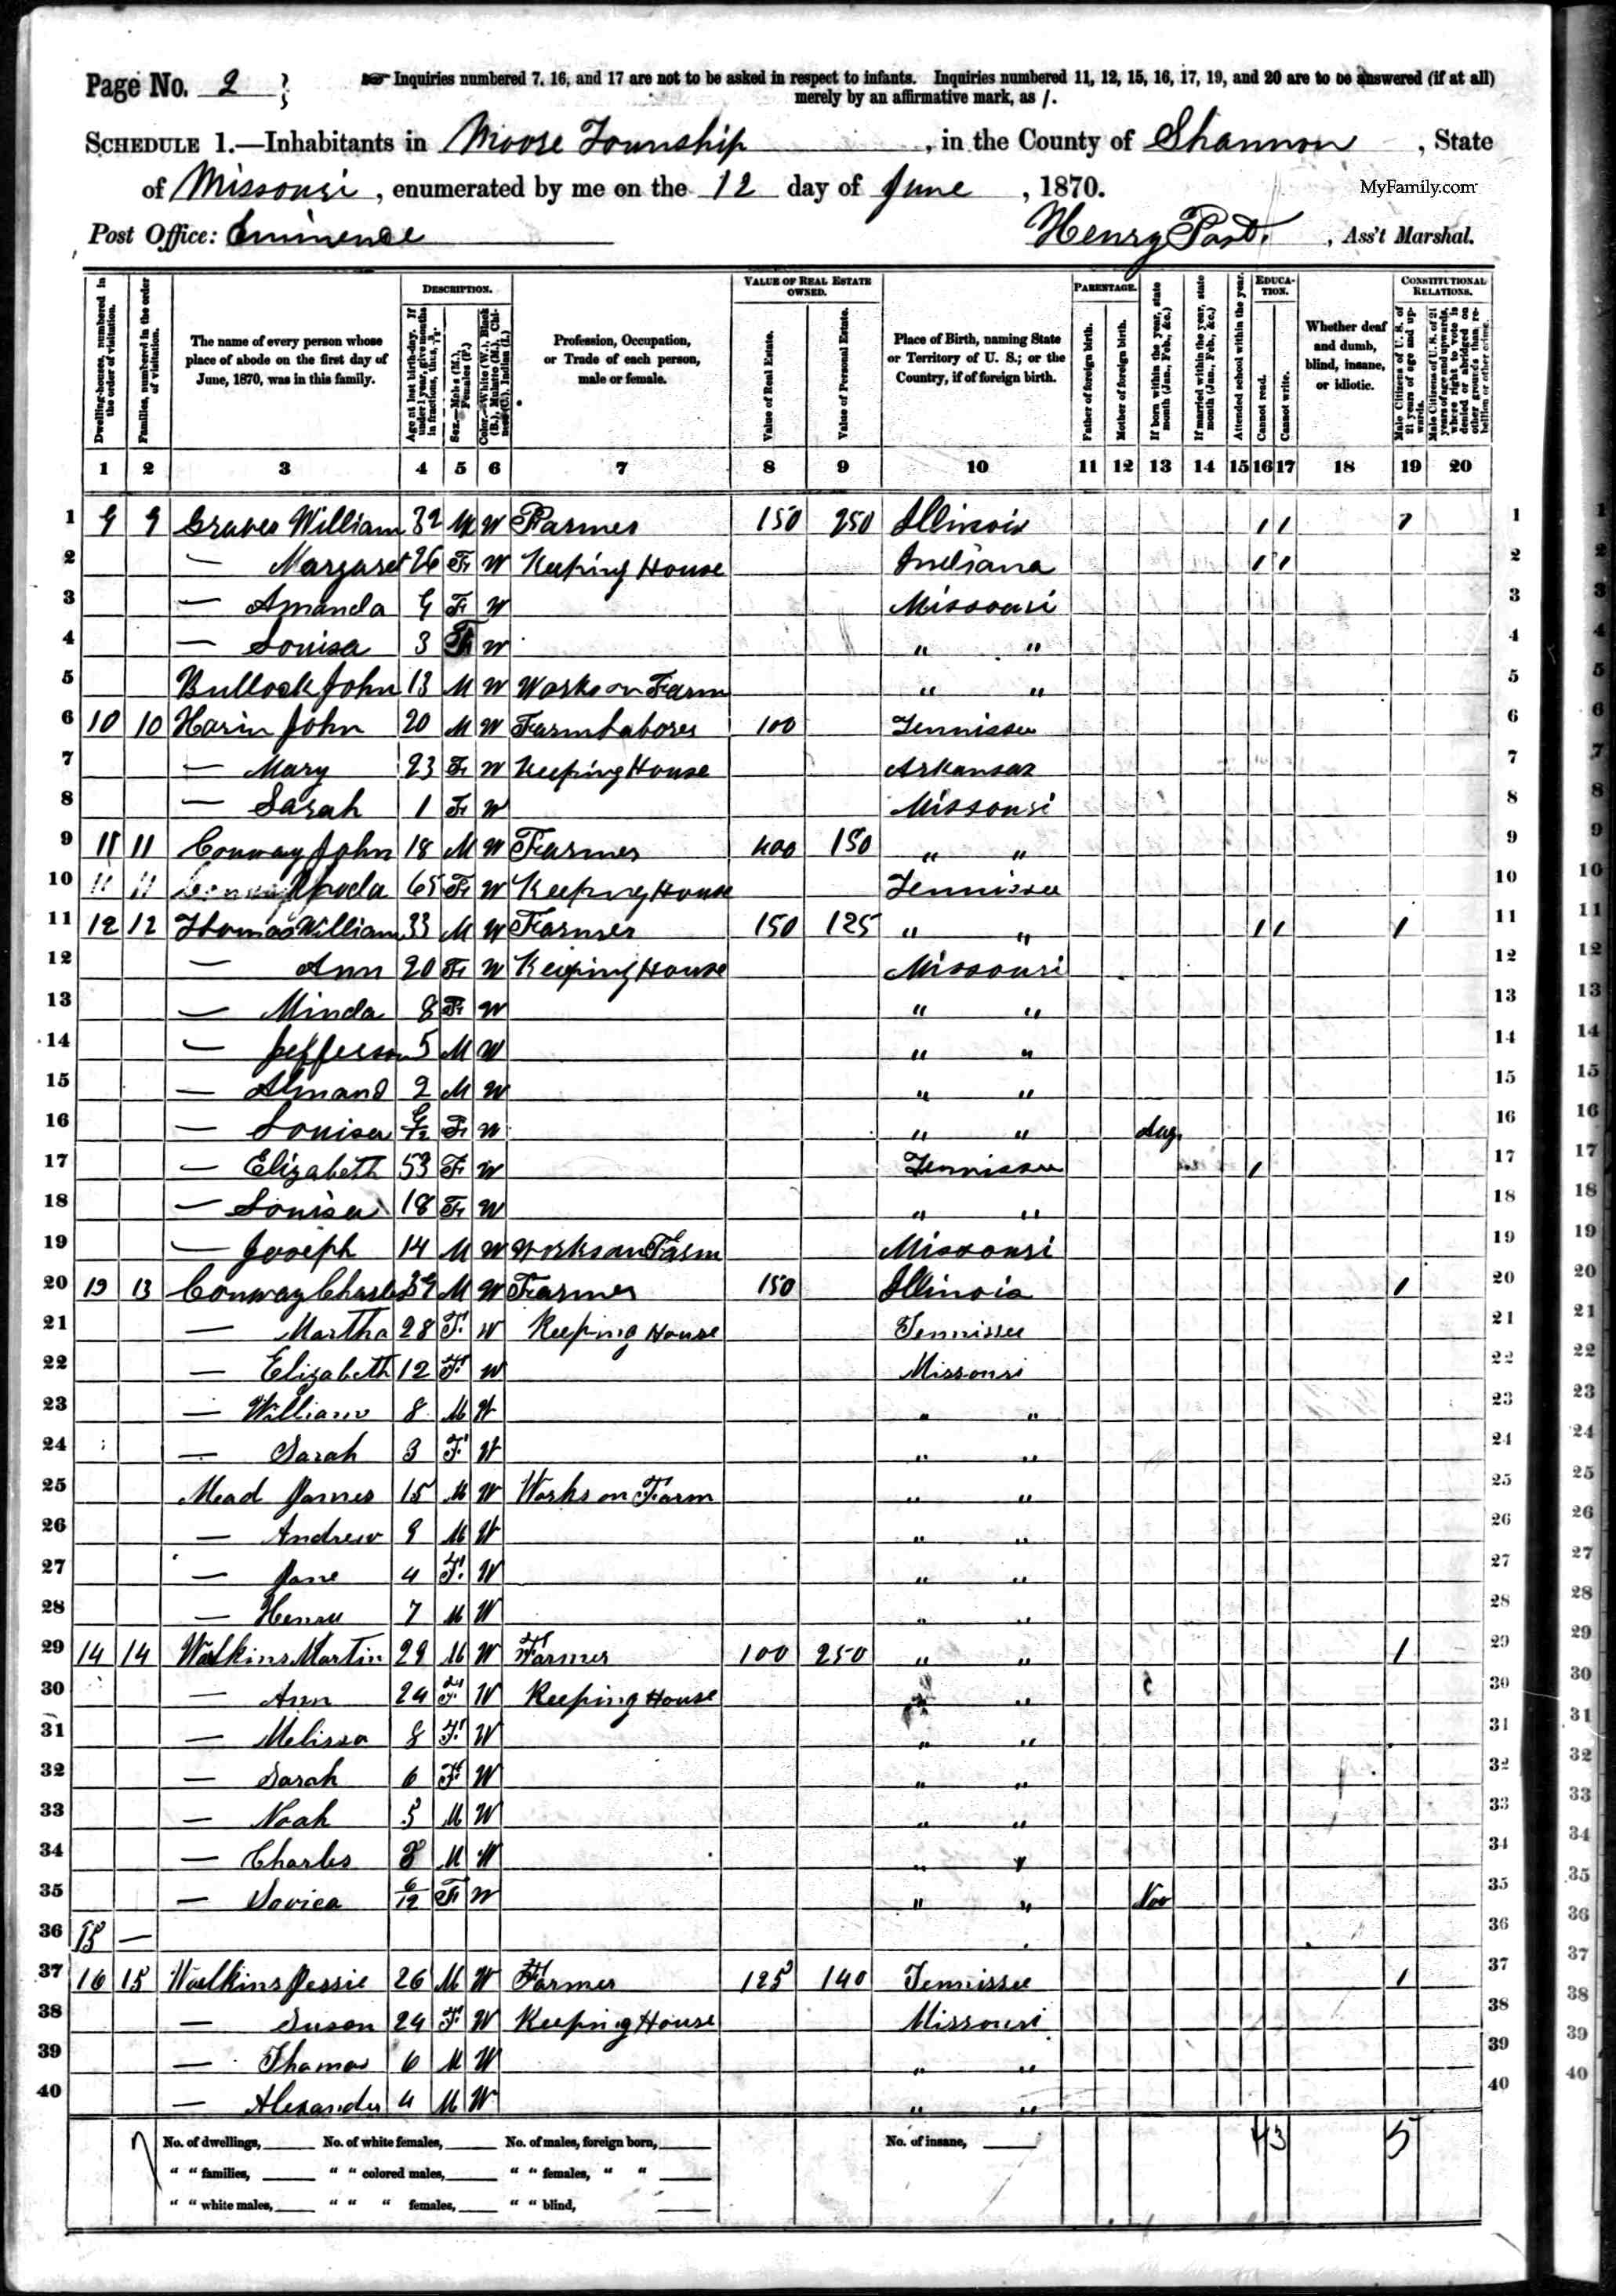 Page No. 2
Inquiries numbered 7, 16, and 17 are not to be asked in respect to infants. Inquiries numbered 11, 12, 15, 16, 17, 19, and 20 are to be answered (if at all)
merely by an affirmative mark, as /.
SCHEDULE 1.—Inhabitants in Moore Township, in the County of Shannon, State
of Missouri, enumerated by me on the 12 day of June, 1870.
MyFamily.com
Post Office: Eminence
Henry Post, Ass't Marshal.
Dwelling-houses, numbered in the order of visitation.
Families, numbered in the order of visitation.
The name of every person whose place of abode on the first day of June, 1870, was in this family.
DESCRIPTION.
Age at last birth-day. If under 1 year, give months in fractions, thus, 3/12.
Sex.—Males (M.), Females (F.)
Color.—White (W.), Black (B.), Mulatto (M.), Chinese (C.), Indian (I.)
Profession, Occupation, or Trade of each person, male or female.
VALUE OF REAL ESTATE OWNED.
Value of Real Estate.
Value of Personal Estate.
Place of Birth, naming State or Territory of U. S.; or the Country, if of foreign birth.
PARENTAGE.
Father of foreign birth.
Mother of foreign birth.
If born within the year, state month (Jan., Feb., &c.)
If married within the year, state month (Jan., Feb., &c.)
EDUCATION.
Attended school within the year.
Cannot read.
Cannot write.
Whether deaf and dumb, blind, insane, or idiotic.
CONSTITUTIONAL RELATIONS.
Male Citizens of U. S. of 21 years of age and upwards.
Male Citizens of U. S. of 21 years of age and upwards, where right to vote is denied or abridged on other grounds than rebellion or other crime.
1 2 3 4 5 6 7 8 9 10 11 12 13 14 15 16 17 18 19 20
1 9 9 Graves William 32 M W Farmer 150 250 Illinois / / / 1
2 — Margaret 26 F W Keeping House Indiana / / 2
3 — Amanda 9 F W Missouri 3
4 — Louisa 3 F W " " 4
5 Bullock John 13 M W Works on Farm " " 5
6 10 10 Harin John 20 M W Farm Laborer 100 Tennissee 6
7 — Mary 23 F W Keeping House Arkansas 7
8 — Sarah 1 F W Missouri 8
9 11 11 Conway John 18 M W Farmer 400 150 " " 9
10 11 11 65 F W Keeping House Tennissee 10
11 12 12 Thomas William 33 M W Farmer 150 125 " " / / / 11
12 — Ann 20 F W Keeping House Missouri 12
13 — Minda 8 F W " " 13
14 — Jefferson 5 M W " " 14
15 — Almand 2 M W " " 15
16 — Louisa 9/12 F W " " Aug 16
17 — Elizabeth 53 F W Tennissee / 17
18 — Louisa 18 F W " " 18
19 — Joseph 14 M W Works on Farm Missouri 19
20 13 13 Conway Charles 39 M W Farmer 150 Illinois / 20
21 — Martha 28 F. W Keeping House Tennissee 21
22 — Elizabeth 12 F. W Missouri 22
23 — William 8 M W " " 23
24 — Sarah 3 F. W " " 24
25 Mead James 15 M W Works on Farm " " 25
26 — Andrew 9 M W " " 26
27 — Jane 4 F. W " " 27
28 — Henry 7 M W " " 28
29 14 14 Walkins Martin 29 M W Farmer 100 250 " " / 29
30 — Ann 24 F. W Keeping House " " 30
31 — Melissa 8 F. W " " 31
32 — Sarah 6 F. W " " 32
33 — Noah 5 M W " " 33
34 — Charles M W " " 34
35 — Lovica 6/12 F W " " Nov 35
36 15 — 36
37 16 15 Walkins Jessie 26 M W Farmer 125 140 Tennissee / 37
38 — Susan 24 F. W Keeping House Missouri 38
39 — Thomas 6 M W " " 39
40 — Alexander 4 M W " " 40
No. of dwellings, No. of white females, No. of males, foreign born, No. of insane, 4 3 5
" " families, " " colored males, " " females, " "
" " white males, " " " females, " " blind,